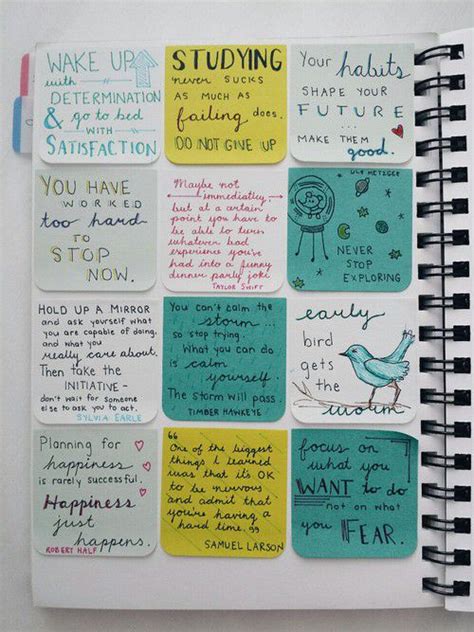 WAKE UP
with
DETERMINATION
& go to bed
WITH
SATISFACTION
STUDYING
never SUCKS
AS MUCH AS
failing does.
DO NOT GIVE UP
Your habits
SHAPE YOUR
FUTURE
... MAKE THEM
good.
YOU HAVE
WORKED
too hard
TO
STOP
NOW.
Maybe not
immediatly,
but at a certain
point you have to
be able to turn
whatever bad
experience you've
had into a funny
dinner party joke
TAYLOR SWIFT
ULF METZGER
NEVER
STOP
EXPLORING
HOLD UP A MIRROR
and ask yourself what
you are capable of doing,
and what you
really care about.
Then take the
INITIATIVE-
don't wait for someone
else to ask you to act.
SYLVIA EARLE
You can't calm the
storm...
so stop trying.
What you can do
is calm
yourself.
The storm will pass.
TIMBER HAWKEYE
early
bird
gets
the
worm
Planning for
happiness
is rarely successful.
Happiness
just
happens.
ROBERT HALF
"One of the biggest
things I learned
was that it's OK
to be nervous
and admit that
you're having a
hard time."
SAMUEL LARSON
focus on
what you
WANT to do
not on what
you FEAR.